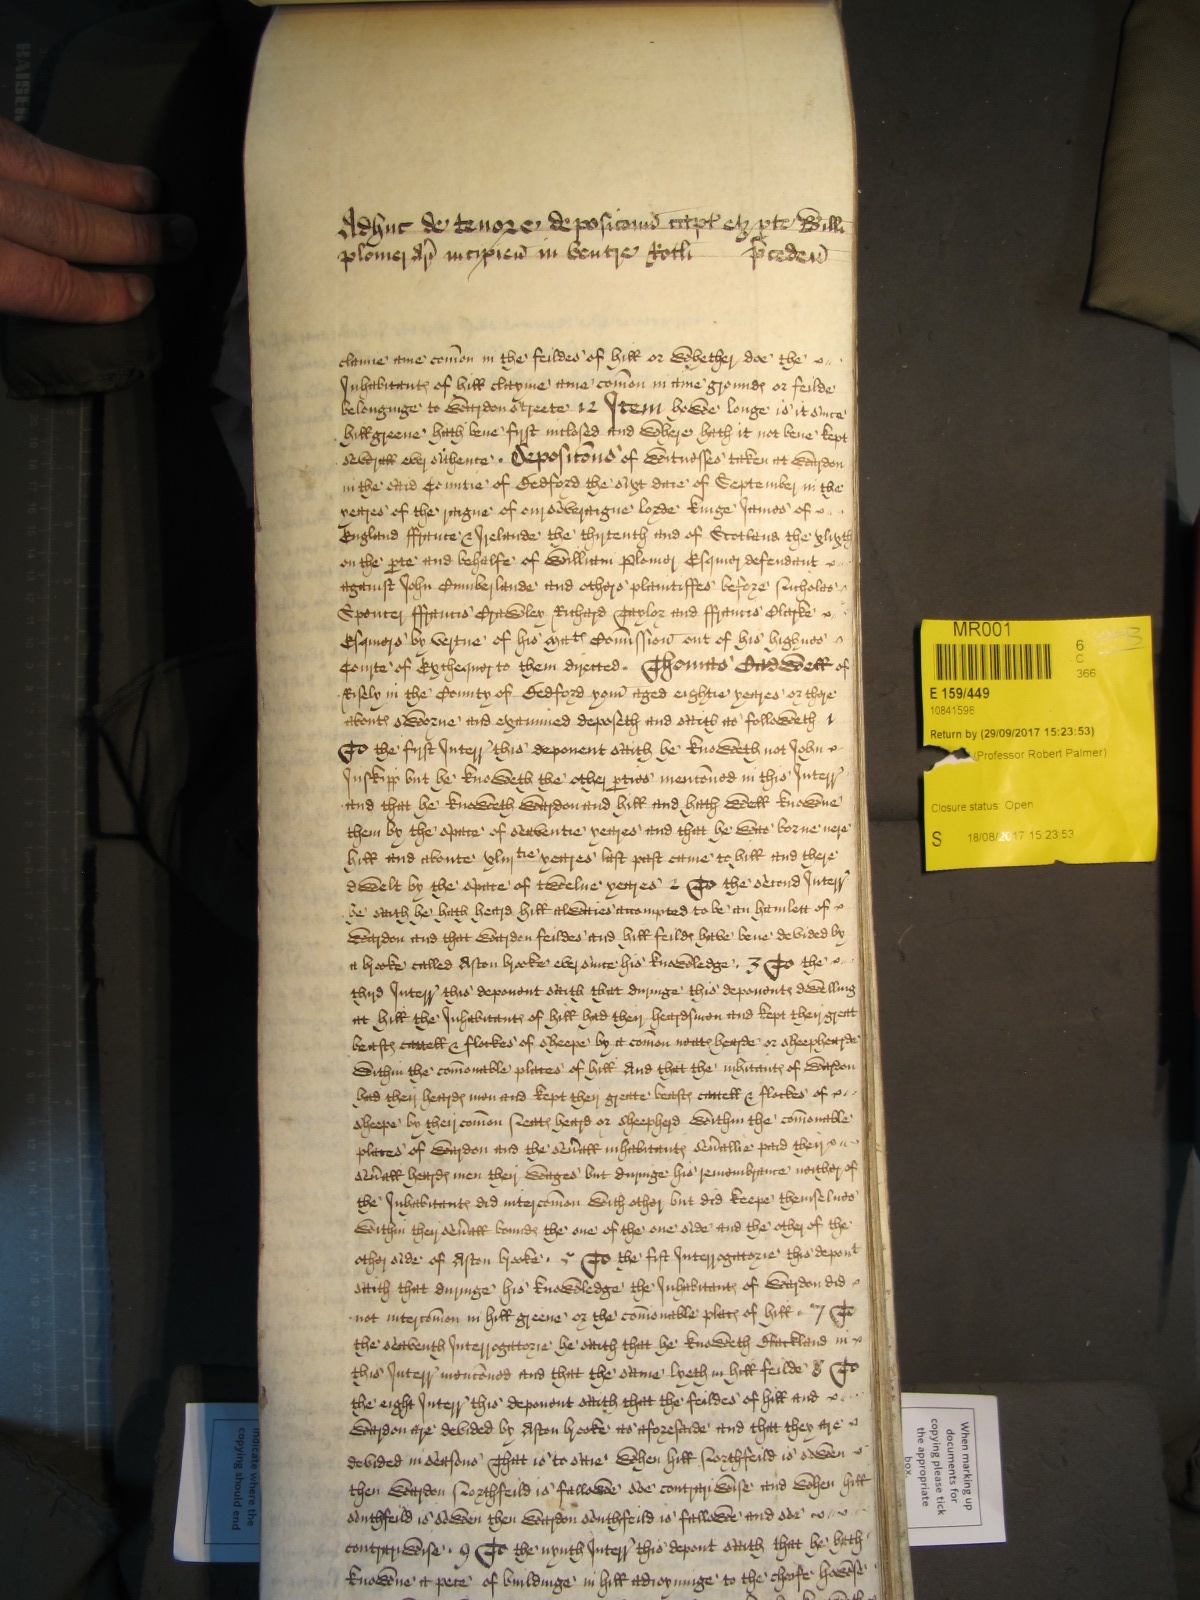 Adhuc de tenore deposicionu capt ex pte Willi
plomer Ar incipien in ventre Rotli pceden
clame anie comon in the feildes of hill or whether doe the
Inhabitants of hill clayme anie comon in anie grounds or feilde
belonginge to wardon streete 12 Item howe longe is it since
hillgreene hath bene first inclosed and where hath it not bene kept
severall ever sithence . Deposicons of witnesses taken at wardon
in the said Countie of Bedford the sixt daie of September in the
yeares of the raigne of our soveraigne lorde kinge James of
England ffrance & Irelande the thirtenth and of Scotland the xlixth
on the pte and behalfe of William Plomer Esquier defendant
against John Cumberlande and others plaintiffes before Nicholas
Spencer ffrancis Crawley Richard Taylor and ffrancis Clarke
Esquiers by vertue of his mats Comission out of his highnes
Courte of Exchequer to them directed . Thomas Cadwell of
Risely in the County of Bedford yom aged eightie yeares or there
abouts sworne and examined deposeth and saith as followeth 1
To the first Interr this deponent saith he knoweth not John
Inskipp but he knoweth the other pties mencioned in this Interr
and that he knoweth wardon and hill and hath well knowne
them by the space of seaventie yeares and that he was borne nere
hill and aboute yeares last past came to hill and there
dwelt by the space of twelve yeares 2 To the second Interr
he saith he hath heard hill alwaies accompted to be an hamlett of
wardon and that wardon feildes and hill feilds have bene devided by
a brooke called Aston brooke ever since his knowledge . 3 To the
third Interr this deponent saith that duringe this deponents dwelling
at hill the Inhabitants of hill had their heardsmen and kept their great
beasts cattell & flockes of sheepe by a comon neats hearde or sheephearde
within the comonable places of hill And that the inhitants of wardon
had their heards men and kept their greate beasts cattell & flockes of
sheepe by their comon Neats heard or sheepherd within the comonable
places of wardon and the severall inhabitants severallie paid their
severall heards men their wages but duringe his remembrance neither of
the Inhabitants did intercomon with other but did keepe themselves
within their severall bounds the one of the one side and the other of the
other side of Aston brooke . 5 To the fift Interrogatorie this depont
saith that duringe his knowledge the Inhabitants of wardon did
not intercomon in hill greene or the comonable places of hill . 7 To
the seaventh Interrogatorie he saith that he knoweth in
this Interr mencioned and that the same lyeth in hill feilde 8 To
the eight Interr this deponent saith that the feildes of hill and
wardon are devided by Aston brooke as aforesaide and that they are
devided in seasons That is to saie when hill Northfeild is sowen
then wardon Northfeild is fallowe soe contrariwise and when hill
southfeild is sowen then wardon southfeild is fallowe and soe
contrariwise . 9 To the nynth Interr this depont saith that he hath
knowne a pece of buildinge in hill adioyninge to the howse
MR001
6
C
366
E 159/449
10841596
Return by (29/09/2017 15:23:53)
(Professor Robert Palmer)
Closure status Open
S 18/08/2017 15:23:53
When marking up
documents for
copying please tick
the appropriate
box.
indicate where the
copying should end
KAISER